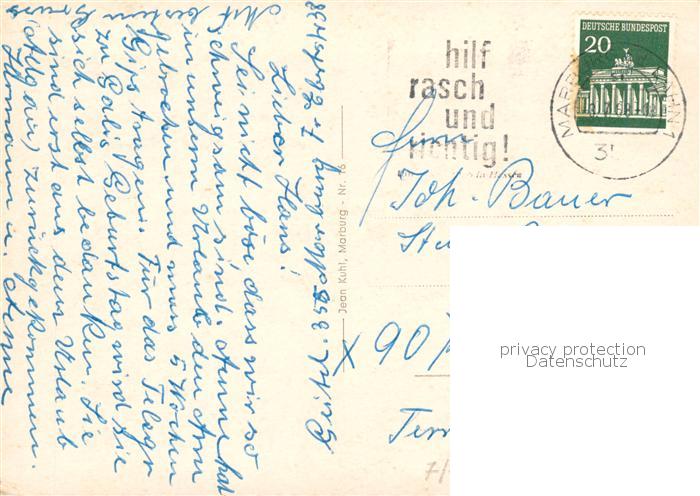 3551 Marburg 7, 8. Aug. 1968
Lieber Hans!
Sei nicht böse dass wir so
schweigsam sind. Anne hat
in unserm Urlaub den Arm
gebrochen und muss 5 Wochen
Gips tragen. Für das Telegr
zu Gabis Geburtstag wird sie
sich selbst bedanken. Sie
sind erst aus dem Urlaub
(Allgäu) zurückgekommen.
Mit
besten
Hermann u. Anne
Jean Kuhl, Marburg - Nr. 16
hilf
rasch
und
richtig!
DEUTSCHE BUNDESPOST
20
MARBURG LAHN 1
Herrn
Joh. Bauer
X 90
privacy protection
Datenschutz